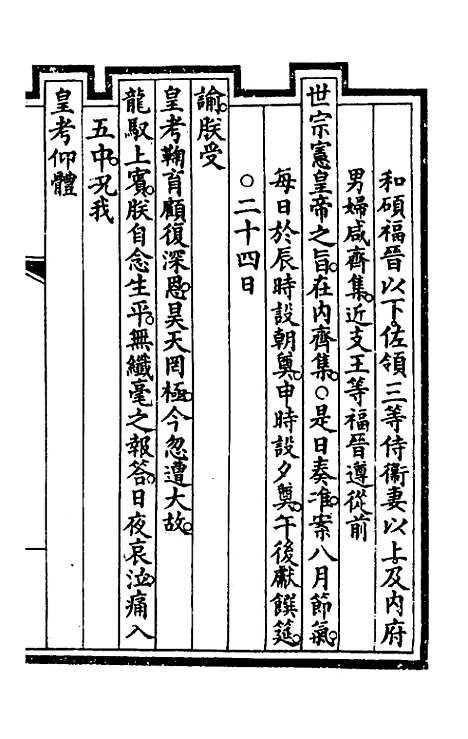 和碩福晉以下。佐領三等侍衞妻以上。及內府
男婦咸齊集。近支王等福晉遵從前
世宗憲皇帝之旨。在內齊集。○是日奏准。案八月節氣。
每日於辰時設朝奠。申時設夕奠。午後獻饌筵。
○二十四日
諭。朕受
皇考鞠育顧復深恩。昊天罔極。今忽遭大故。
龍馭上賓。朕自念生平。無纖毫之報答。日夜哀泣。痛入
五中。況我
皇考仰體